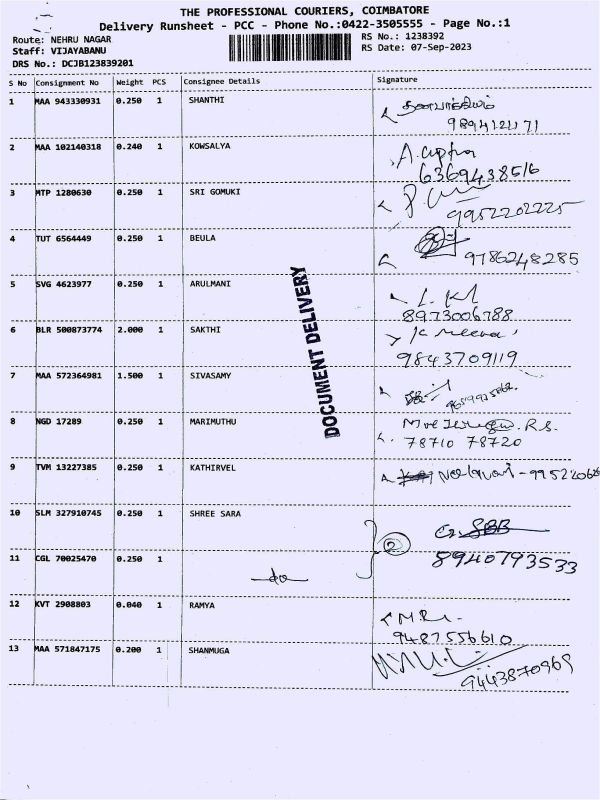 THE PROFESSIONAL COURIERS, COIMBATORE
Delivery Runsheet - PCC - Phone No.:0422-3505555 - Page No.:1
Route: NEHRU NAGAR RS No.: 1238392
Staff: VIJAYABANU RS Date: 07-Sep-2023
DRS No.: DCJB123839201
S No Consignment No Weight PCS Consignee Details Signature
1 MAA 943330931 0.250 1 SHANTHI
2 MAA 102140318 0.240 1 KOWSALYA
6369438516
3 MTP 1280630 0.250 1 SRI GOMUKI
9952202225
4 TUT 6564449 0.250 1 BEULA
9786248285
5 SVG 4623977 0.250 1 ARULMANI
8973006788
6 BLR 500873774 2.000 1 SAKTHI
K Meena
9843709119
7 MAA 572364981 1.500 1 SIVASAMY
DOCUMENT DELIVERY
8 NGD 17289 0.250 1 MARIMUTHU
78710 78720
9 TVM 13227385 0.250 1 KATHIRVEL
10 SLM 327910745 0.250 1 SHREE SARA
2
8940793533
11 CGL 70025470 0.250 1 do
12 KVT 2908803 0.040 1 RAMYA
9487556610
13 MAA 571847175 0.200 1 SHANMUGA
9443870969